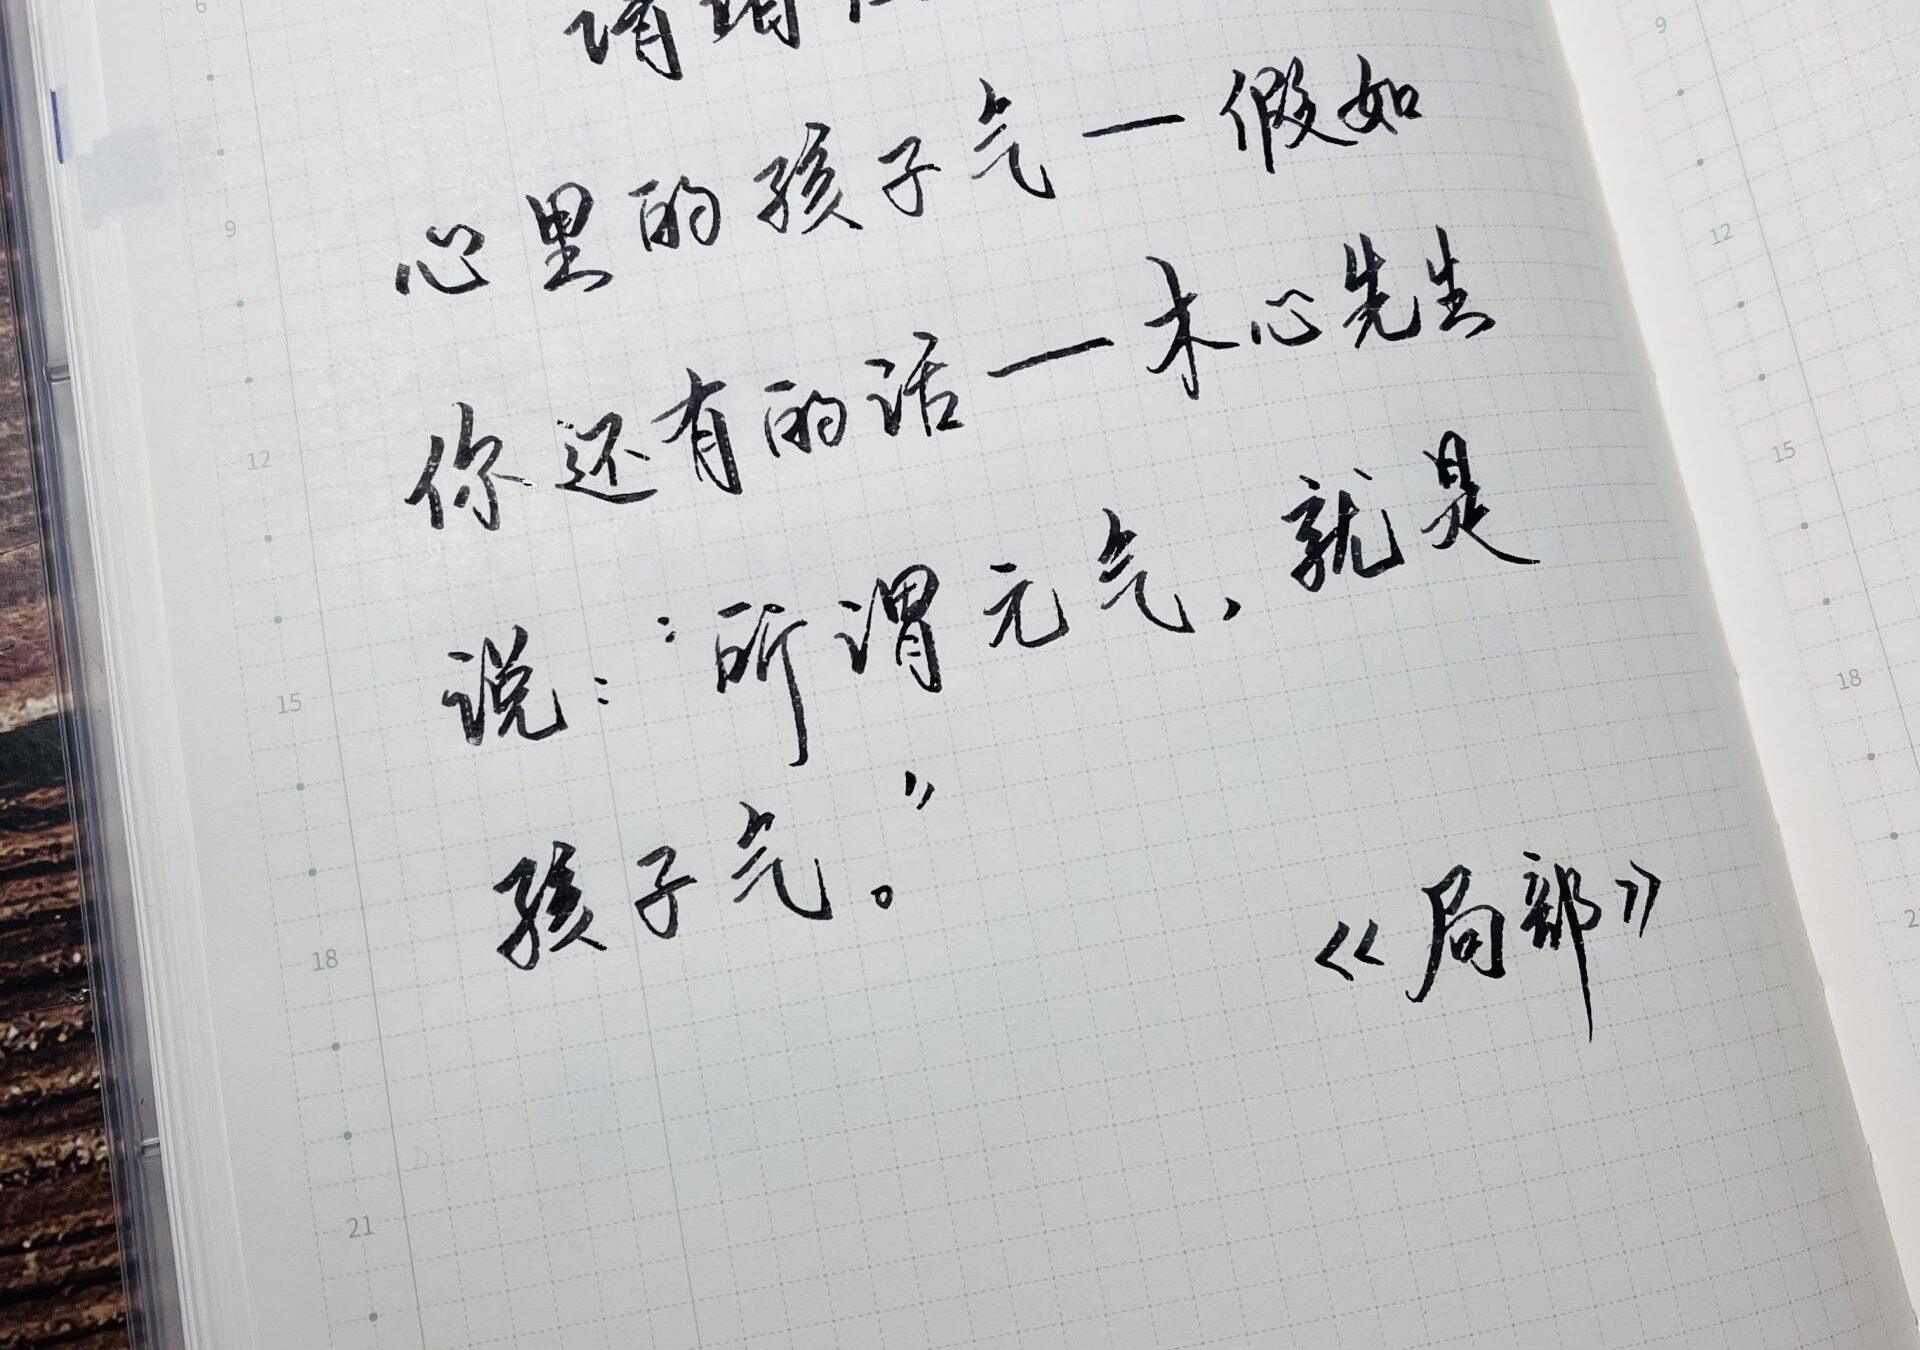 心里的孩子气—假如
你还有的话—木心先生
说：“所谓元气，就是
孩子气。”
《局部》
6
9
12
15
18
21
9
12
15
18